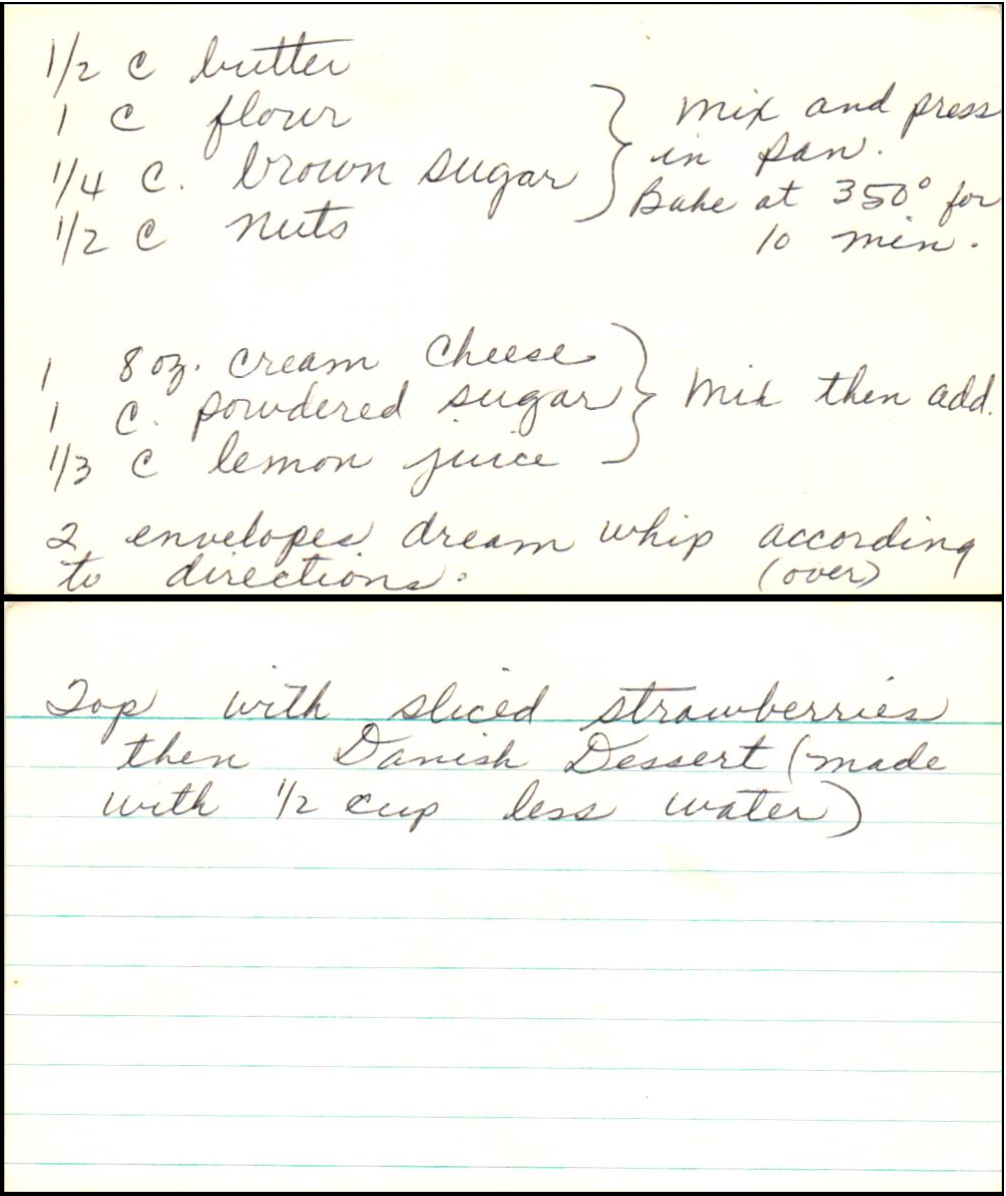 1/2 c butter
1 c flour
1/4 c. brown sugar
1/2 c nuts
Mix and press
in pan.
Bake at 350° for
10 min.
1 8 oz. cream cheese
1 c. powdered sugar
1/3 c lemon juice
Mix then add.
2 envelopes dream whip according
to directions.
(over)
Top with sliced strawberries
then Danish Dessert (made
with 1/2 cup less water)